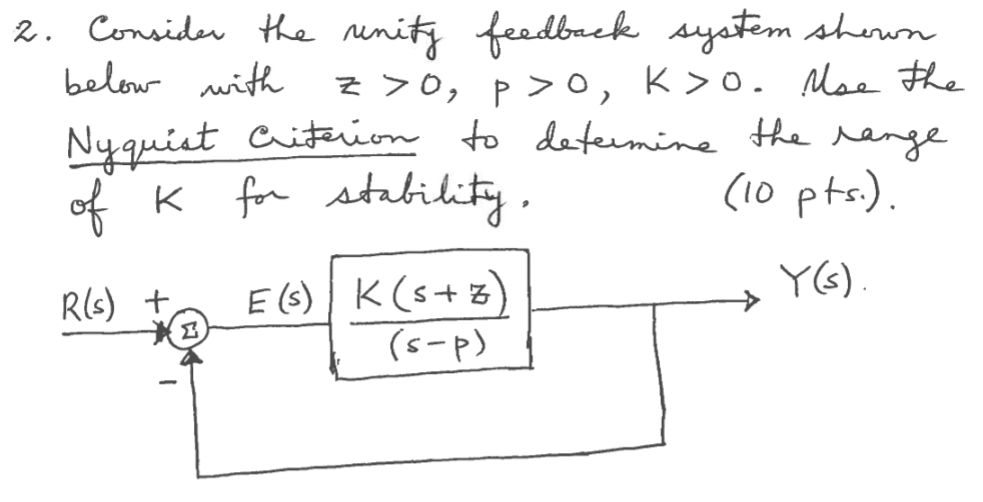 2. Consider the unity feedback system shown
below with z > 0, p > 0, K > 0. Use the
Nyquist Criterion to determine the range
of K for stability. (10 pts.).
R(s) + Σ − E(s) K(s+z) / (s-p) Y(s).